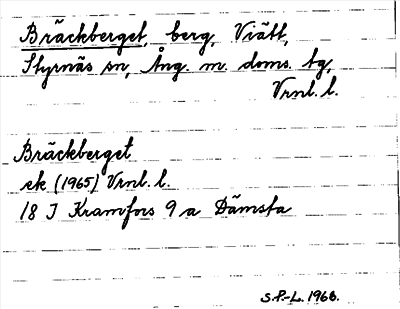 Bräckberget, berg, Viätt,
Styrnäs sn, Ång. m. doms. tg,
Vrnl. l.
Bräckberget
ek (1965) Vrnl. l.
18 J Kramfors 9 a Dämsta
S.P.-L. 1966.